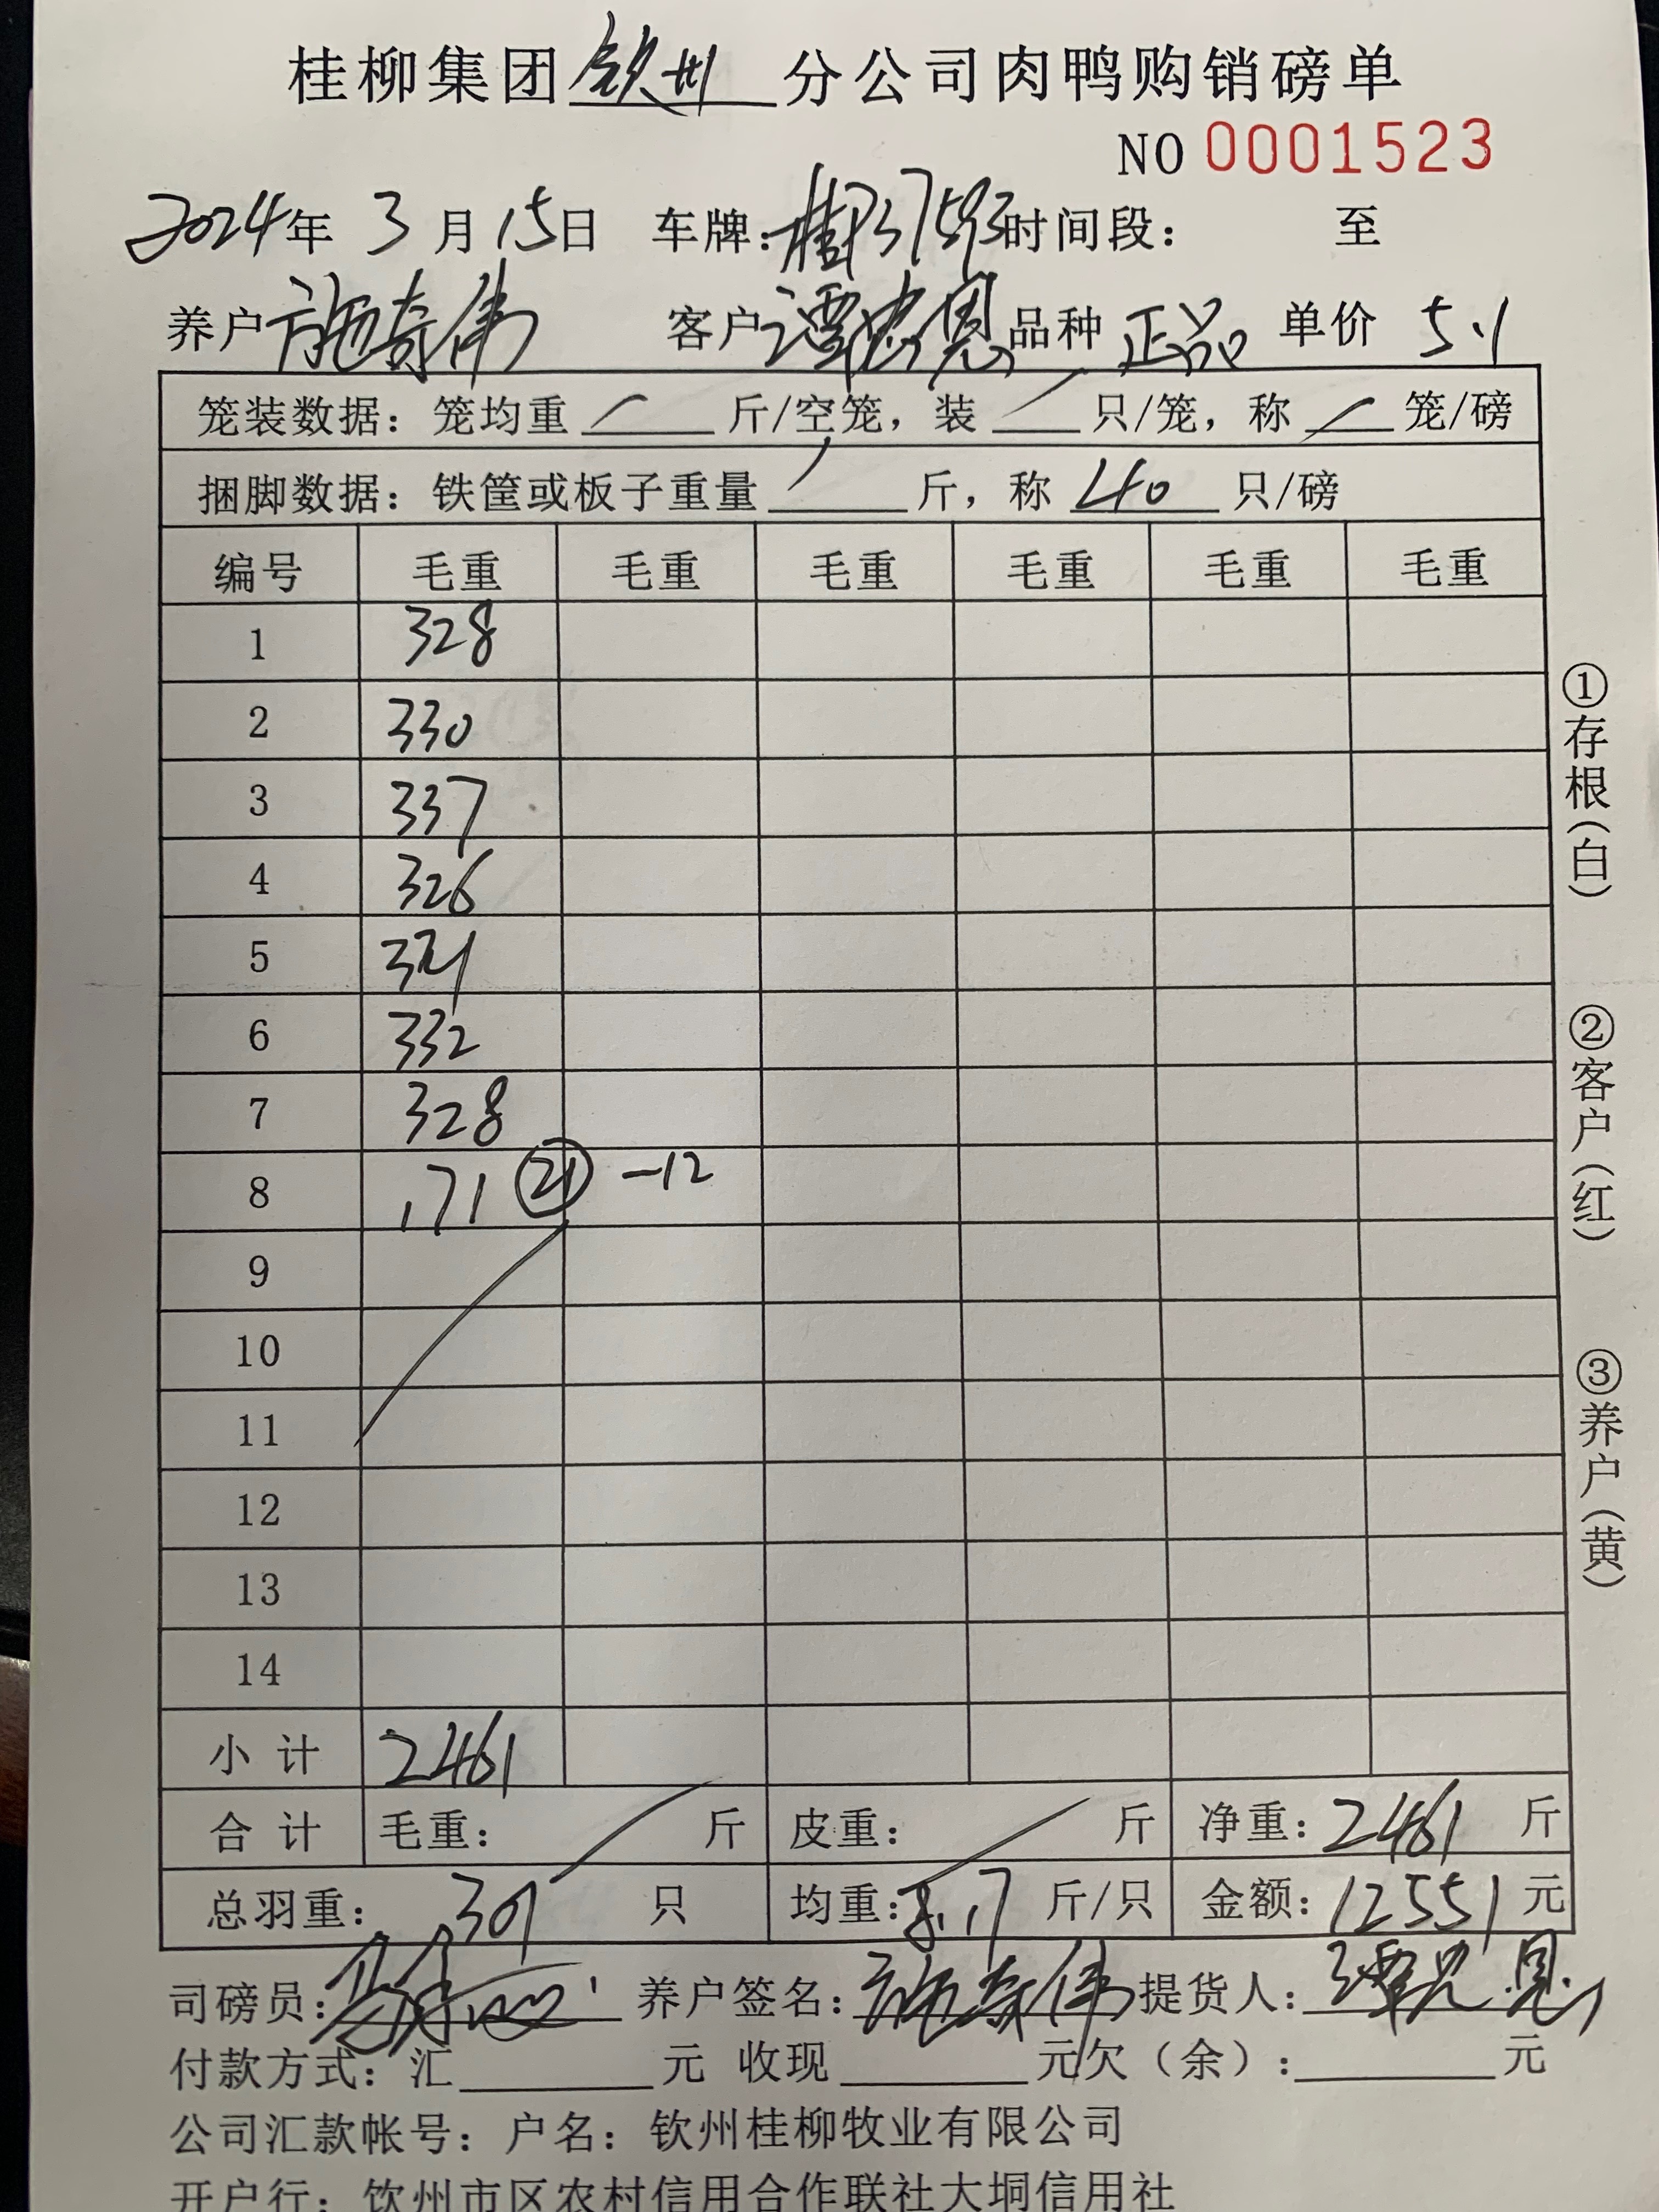 桂柳集团 钦州 分公司肉鸭购销磅单
NO 0001523
2024年 3月 15日 车牌：桂P37593 时间段： 至
养户 施奇伟 客户 谭忠恩 品种 正品 单价 5.1
笼装数据：笼均重 / 斤/空笼，装 / 只/笼，称 / 笼/磅
捆脚数据：铁筐或板子重量 / 斤，称 40 只/磅
编号 毛重 毛重 毛重 毛重 毛重 毛重
1 328
2 330
3 337
4 326
5 321
6 332
7 328
8 171 ㉑ -12
9
10
11
12
13
14
小计 2461
合计 毛重： / 斤 皮重： / 斤 净重：2461 斤
总羽重：301 只 均重：8.17 斤/只 金额：12551 元
司磅员： 养户签名：施奇伟 提货人：谭忠恩
付款方式：汇 元 收现 元欠（余）： 元
公司汇款帐号：户名：钦州桂柳牧业有限公司
开户行：钦州市区农村信用合作联社大垌信用社
①存根（白）
②客户（红）
③养户（黄）